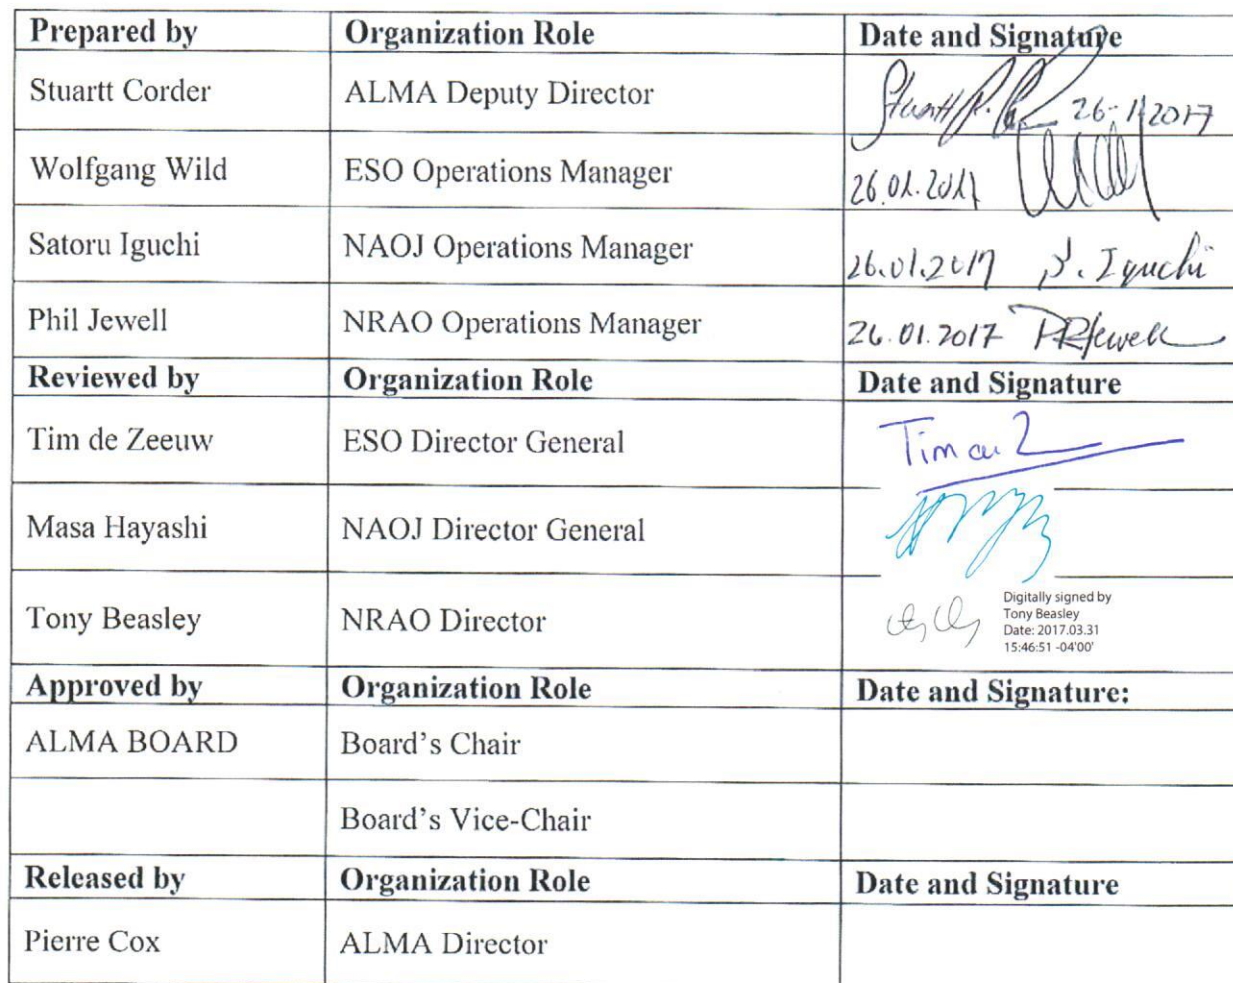 Prepared by Organization Role Date and Signature
Stuartt Corder ALMA Deputy Director Stuartt 26-1-2017
Wolfgang Wild ESO Operations Manager 26.01.2017
Satoru Iguchi NAOJ Operations Manager 26.01.2017 S. Iguchi
Phil Jewell NRAO Operations Manager 26.01.2017 PRJewell
Reviewed by Organization Role Date and Signature
Tim de Zeeuw ESO Director General Tim de Z
Masa Hayashi NAOJ Director General
Tony Beasley NRAO Director Digitally signed by
Tony Beasley
Date: 2017.03.31
15:46:51 -04'00'
Approved by Organization Role Date and Signature:
ALMA BOARD Board's Chair
Board's Vice-Chair
Released by Organization Role Date and Signature
Pierre Cox ALMA Director